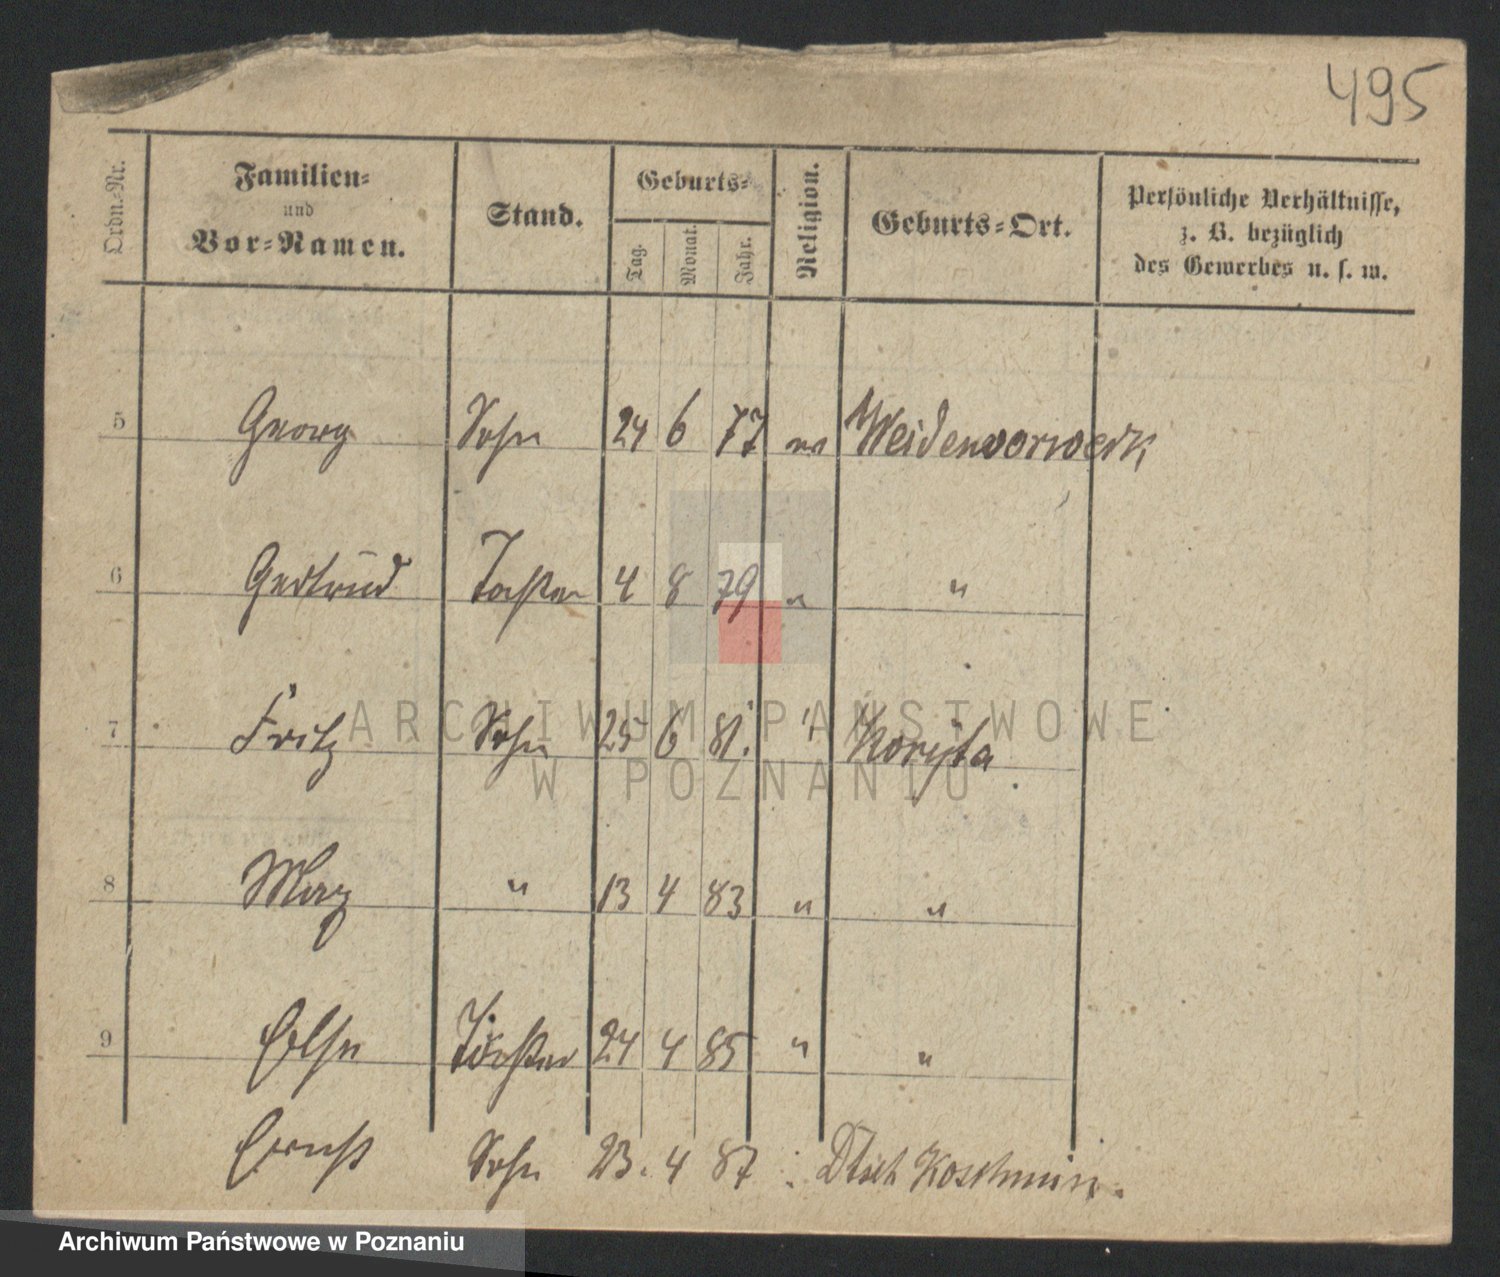 495
Ordn.-Nr.
Familien-
und
Vor-Namen.
Stand.
Geburts-
Tag.
Monat.
Jahr.
Religion.
Geburts-Ort.
Persönliche Verhältnisse,
z. B. bezüglich
des Gewerbes u. s. w.
5 Georg Sohn 24 6 77 ev Weidenvorwerk
6 Gertrud Tochter 4 8 79 " "
7 Fritz Sohn 25 6 81. " Koryta
8 Max " 13 4 83 " "
9 Else Tochter 24 4 85 " "
Ernst Sohn 23. 4 87 : Dtsch Koschmin.
ARCHIWUM PAŃSTWOWE
W POZNANIU
Archiwum Państwowe w Poznaniu